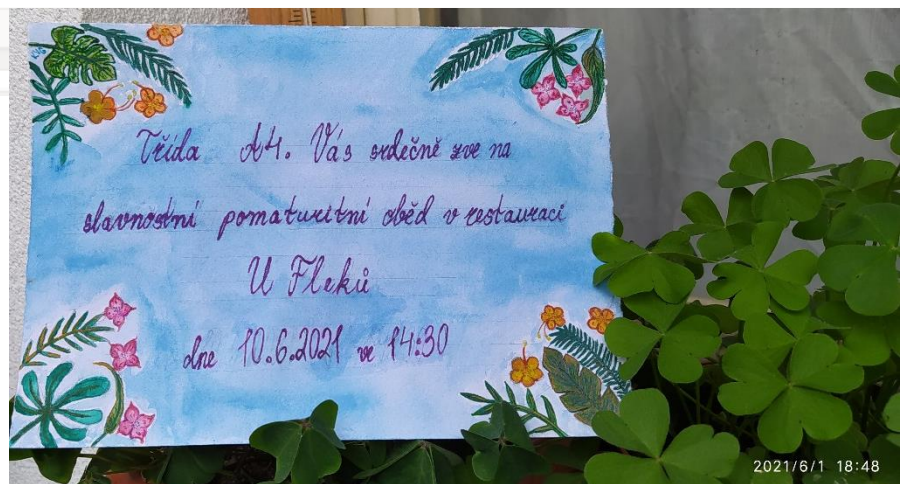 Třída A4. Vás srdečně zve na
slavnostní pomaturitní oběd v restauraci
U Fleků
dne 10.6.2021 ve 14:30
2021/6/1 18:48